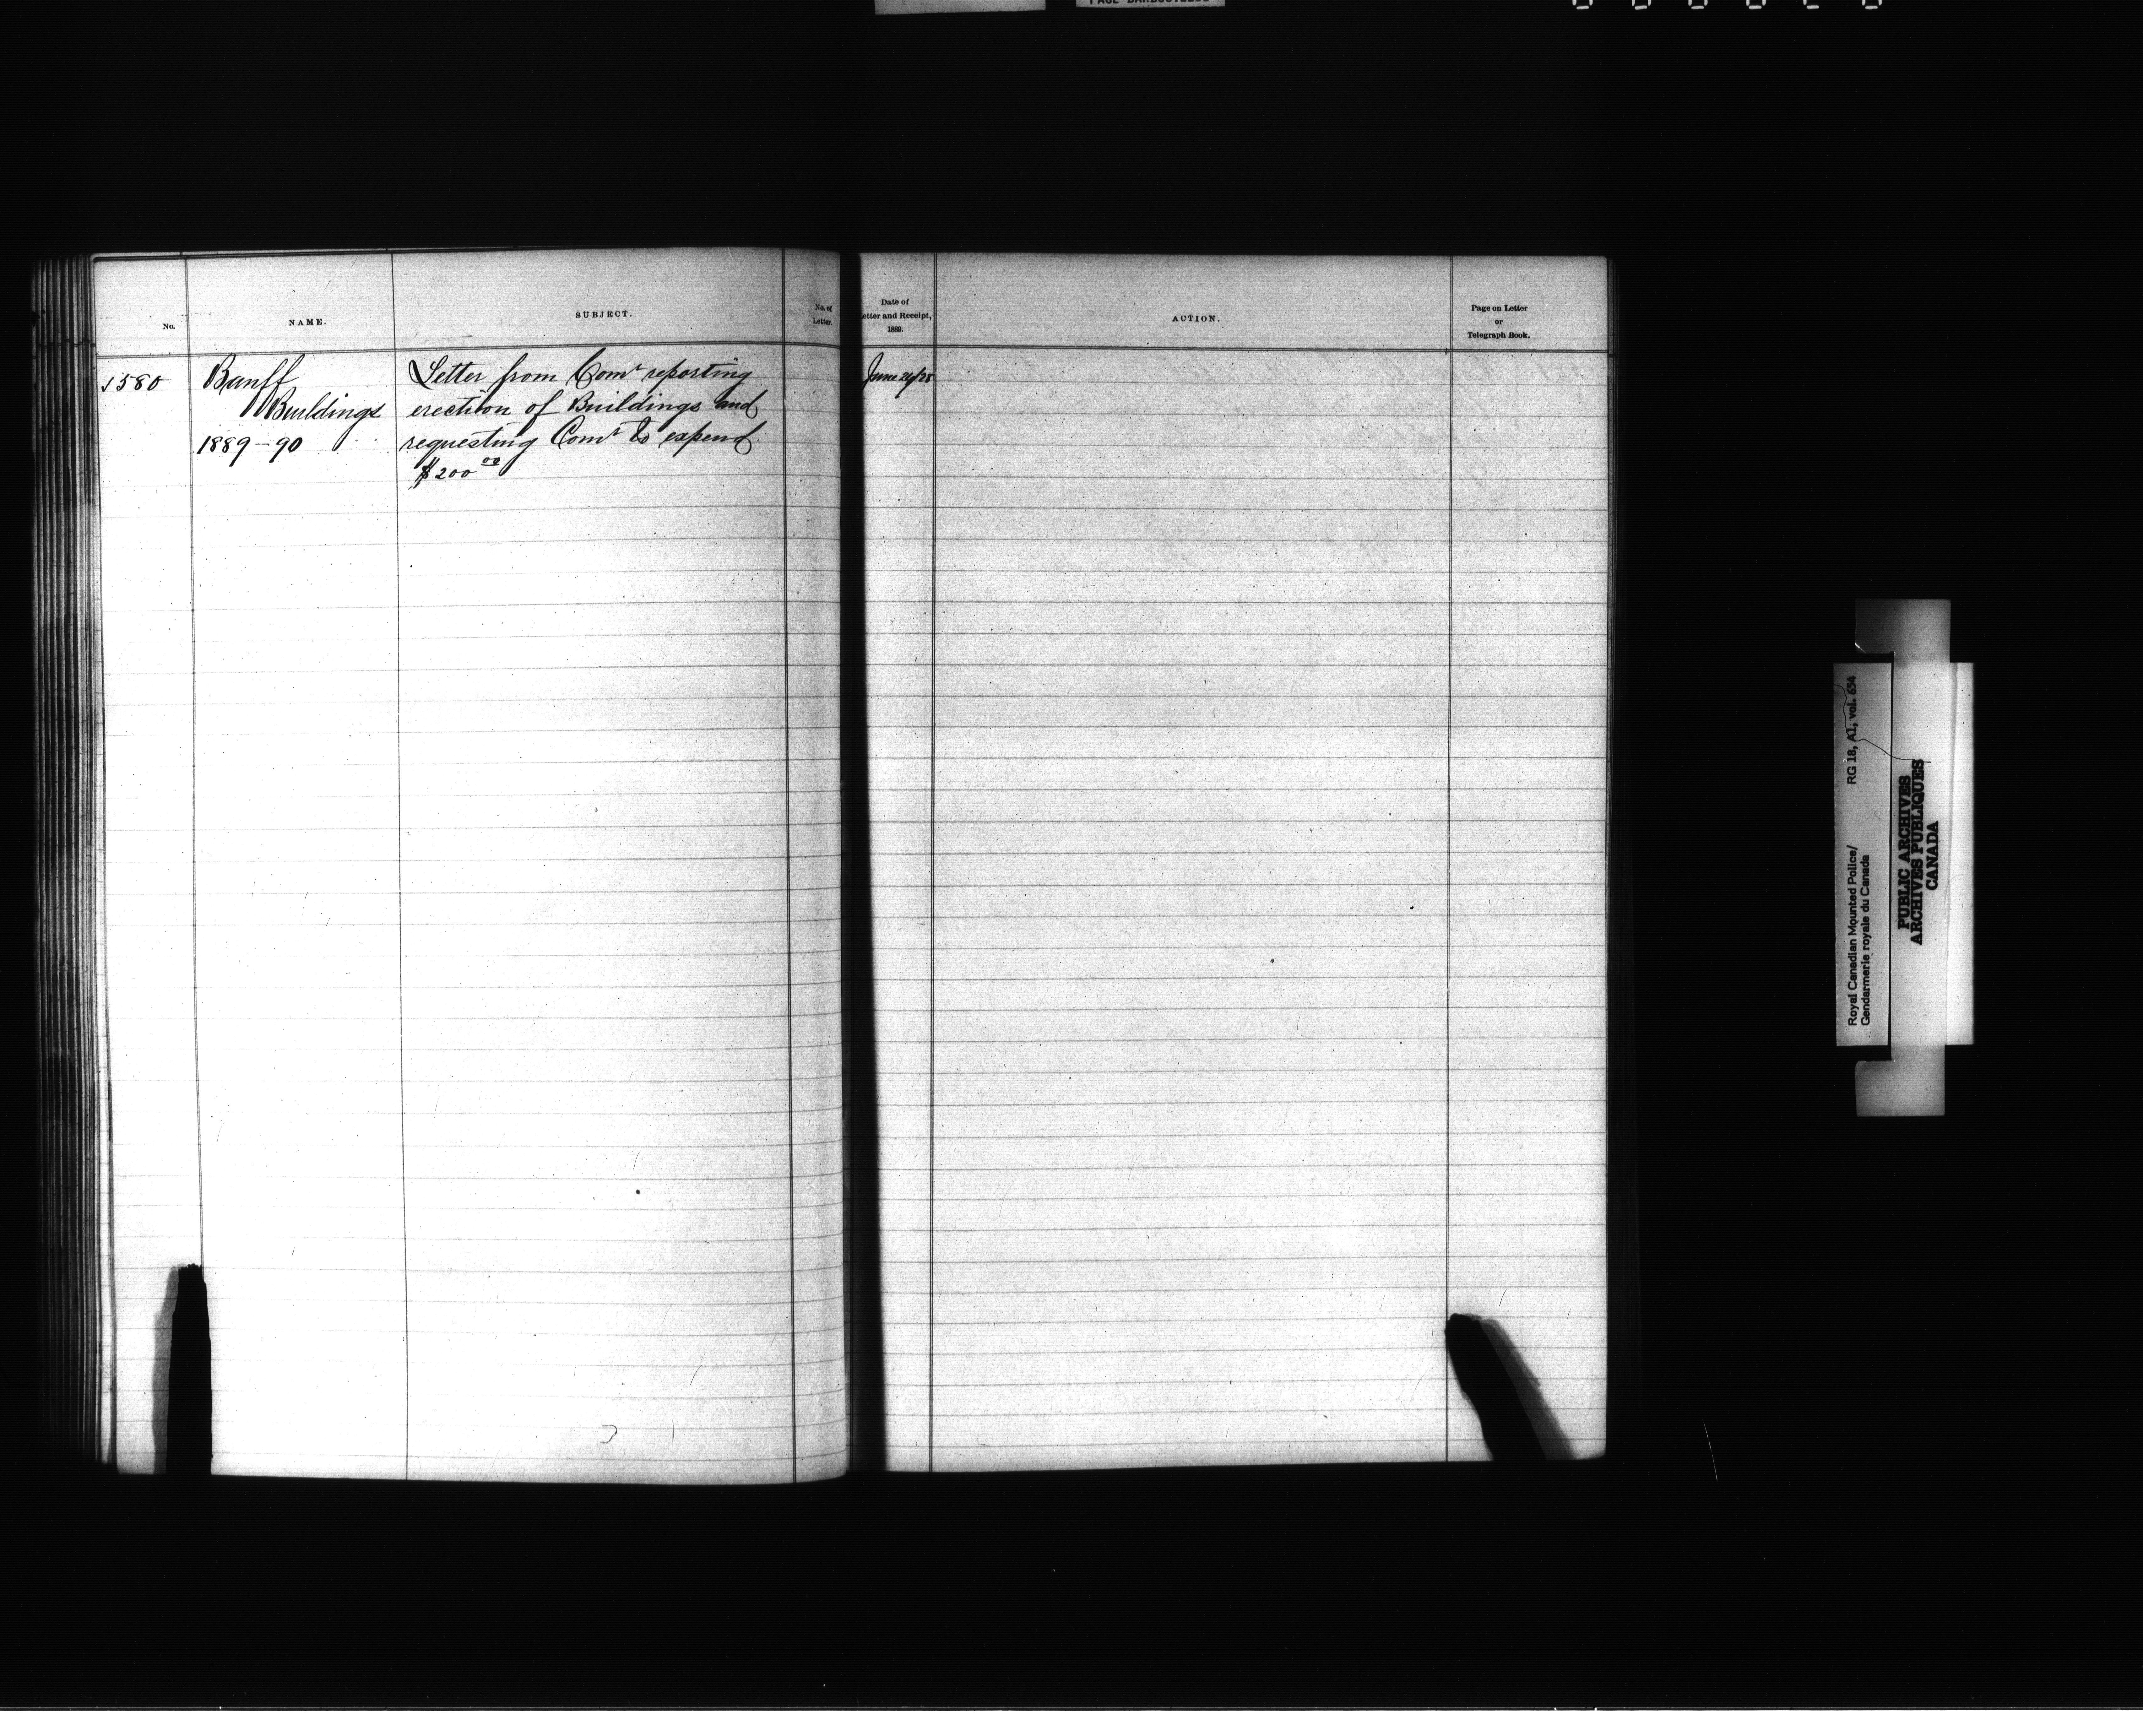 No.
NAME.
SUBJECT.
No. of
Letter.
Date of
etter and Receipt,
1889.
ACTION.
Page on Letter
or
Telegraph Book.
1580
Banff
Buildings
1889-90
Letter from Comr reporting
erection of Buildings and
requesting Comr to expend
$200 00
June 24/28
Royal Canadian Mounted Police/
Gendarmerie royale du Canada
RG 18, A1, vol. 654
PUBLIC ARCHIVES
ARCHIVES PUBLIQUES
CANADA